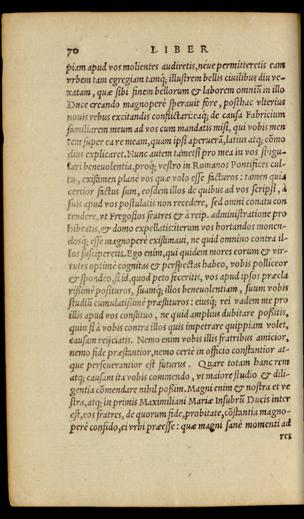 70 LIBER
piam apud vos molientes audiretis, neue permitteretis eam
vrbem tam egregiam tamq́; illustrem bellis ciuilibus diu ve-
xatam, quæ sibi finem bellorum & laborem omniũ in illo
Duce creando magnoperè sperauit fore, posthac vlterius
nouis rebus excitandis conflictari: eaq́; de causa Fabricium
familiarem meum ad vos cum mandatis misi, qui vobis men
tem super ea re meam, quam ipsi aperuerã, latius atq; cõmo
dius explicaret. Nunc autem tametsi pro mea in vos singu-
lari beneuolentia, proq́; vestro in Romanos Pontifices cul-
tu, existimem planè vos quæ volo esse facturos: tamen quia
certior factus sum, eosdem illos de quibus ad vos scripsi, à
suis apud vos postulatis non recedere, sed omni conatu con
tendere, vt Fregosios fratres & à reip. administratione pro
hibeatis, & domo expellatis: iterum vos hortandos monen-
dosq́; esse magnoperè existimaui, ne quid omnino contra il-
los susciperetis. Ego enim, qui quidem mores eorum & vir-
tutes optimè cognitas & perspectas habeo, vobis polliceor
& spondeo, si id, quod peto feceritis, vos apud ipsos præcla
rißimè posituros, suamq́; illos beneuolentiam, suum vobis
studiũ cumulatißimè præstituros: eiusq́; rei vadem me pro
illis apud vos constituo, ne quid amplius dubitare poßitis,
quin si à vobis contra illos quis impetrare quippiam volet,
eum reijciatis. Nemo enim vobis illis fratribus amicior,
nemo fide præstantior, nemo certè in officio constantior at-
que perseuerantior est futurus. Quare totam hanc rem
atq; causam ita vobis commendo, vt maiore studio & dili-
gentia cõmendare nihil poßim. Magni enim & nostra et ve
stra, atq; in primis Maximiliani Mariæ Insubrũ Ducis inter
est, eos fratres, de quorum fide, probitate, cõstantia magno-
perè confido, ei vrbi præesse: quæ magni sanè momenti ad
res